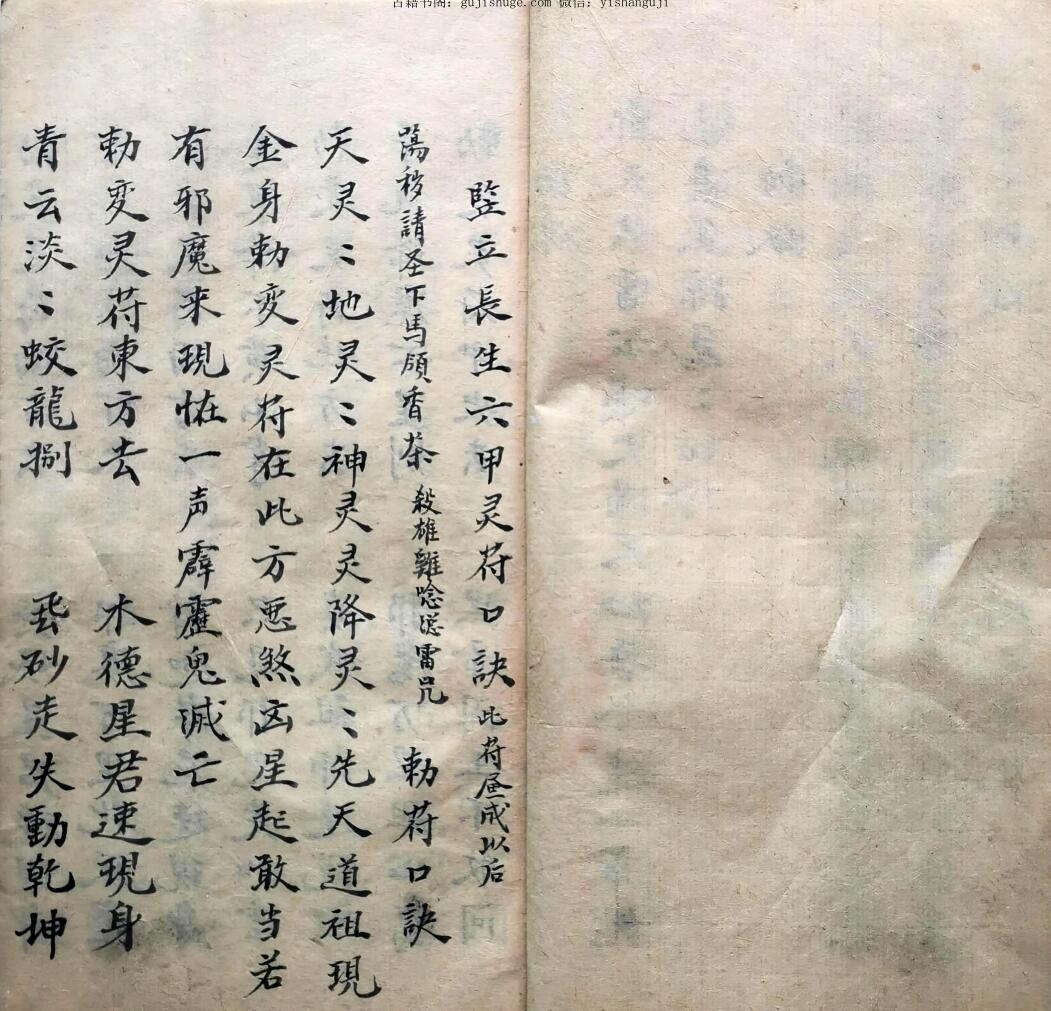 古籍书阁：gujishuge.com 微信：yishanguji
竪立長生六甲灵苻口訣 此苻昼成以后
蕩秽請圣下馬領香茶 殺雄雞唸 雷咒 勅苻口訣
天灵〻地灵〻神灵灵降灵〻先天道祖現
金身勅变灵苻在此方惡煞凶星起敢当若
有邪魔来現怪一声霹靂鬼滅亡
勅变灵苻東方去 木德星君速現身
青云淡〻蛟龍捌 砂走失動乾坤